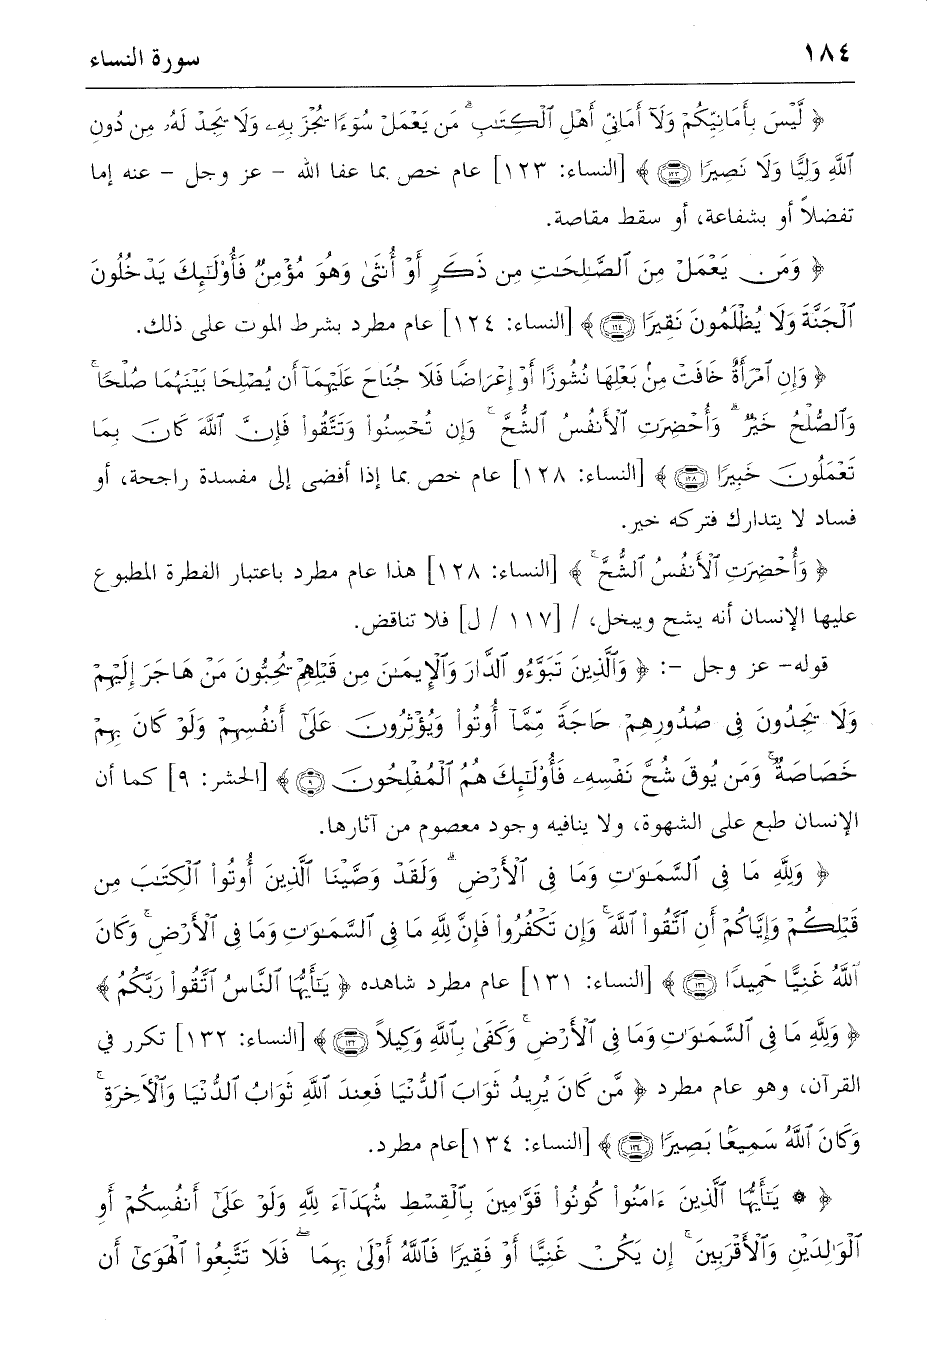 ١٨٤
سورة النساء
﴿ لَّيْسَ بِأَمَانِيِّكُمْ وَلَآ أَمَانِىِّ أَهْلِ ٱلْكِتَـٰبِ ۗ مَن يَعْمَلْ سُوٓءًا يُجْزَ بِهِۦ وَلَا يَجِدْ لَهُۥ مِن دُونِ
ٱللَّهِ وَلِيًّا وَلَا نَصِيرًا ١٢٣ ﴾ [النساء: ١٢٣] عام خص بما عفا الله - عز وجل - عنه إما
تفضلاً أو بشفاعة، أو سقط مقاصة.
﴿ وَمَن يَعْمَلْ مِنَ ٱلصَّـٰلِحَـٰتِ مِن ذَكَرٍ أَوْ أُنثَىٰ وَهُوَ مُؤْمِنٌ فَأُو۟لَـٰٓئِكَ يَدْخُلُونَ
ٱلْجَنَّةَ وَلَا يُظْلَمُونَ نَقِيرًا ١٢٤ ﴾ [النساء: ١٢٤] عام مطرد بشرط الموت على ذلك.
﴿ وَإِنِ ٱمْرَأَةٌ خَافَتْ مِنۢ بَعْلِهَا نُشُوزًا أَوْ إِعْرَاضًا فَلَا جُنَاحَ عَلَيْهِمَآ أَن يُصْلِحَا بَيْنَهُمَا صُلْحًا ۚ
وَٱلصُّلْحُ خَيْرٌ ۗ وَأُحْضِرَتِ ٱلْأَنفُسُ ٱلشُّحَّ ۚ وَإِن تُحْسِنُوا۟ وَتَتَّقُوا۟ فَإِنَّ ٱللَّهَ كَانَ بِمَا
تَعْمَلُونَ خَبِيرًا ١٢٨ ﴾ [النساء: ١٢٨] عام خص بما إذا أفضى إلى مفسدة راجحة، أو
فساد لا يتدارك فتركه خير.
﴿ وَأُحْضِرَتِ ٱلْأَنفُسُ ٱلشُّحَّ ۚ ﴾ [النساء: ١٢٨] هذا عام مطرد باعتبار الفطرة المطبوع
عليها الإنسان أنه يشح ويبخل، / [١١٧ / ل] فلا تناقض.
قوله- عز وجل -: ﴿ وَٱلَّذِينَ تَبَوَّءُو ٱلدَّارَ وَٱلْإِيمَـٰنَ مِن قَبْلِهِمْ يُحِبُّونَ مَنْ هَاجَرَ إِلَيْهِمْ
وَلَا يَجِدُونَ فِى صُدُورِهِمْ حَاجَةً مِّمَّآ أُوتُوا۟ وَيُؤْثِرُونَ عَلَىٰٓ أَنفُسِهِمْ وَلَوْ كَانَ بِهِمْ
خَصَاصَةٌ ۚ وَمَن يُوقَ شُحَّ نَفْسِهِۦ فَأُو۟لَـٰٓئِكَ هُمُ ٱلْمُفْلِحُونَ ٩ ﴾ [الحشر: ٩] كما أن
الإنسان طبع على الشهوة، ولا ينافيه وجود معصوم من آثارها.
﴿ وَلِلَّهِ مَا فِى ٱلسَّمَـٰوَٰتِ وَمَا فِى ٱلْأَرْضِ ۗ وَلَقَدْ وَصَّيْنَا ٱلَّذِينَ أُوتُوا۟ ٱلْكِتَـٰبَ مِن
قَبْلِكُمْ وَإِيَّاكُمْ أَنِ ٱتَّقُوا۟ ٱللَّهَ ۚ وَإِن تَكْفُرُوا۟ فَإِنَّ لِلَّهِ مَا فِى ٱلسَّمَـٰوَٰتِ وَمَا فِى ٱلْأَرْضِ ۚ وَكَانَ
ٱللَّهُ غَنِيًّا حَمِيدًا ١٣١ ﴾ [النساء: ١٣١] عام مطرد شاهده ﴿ يَـٰٓأَيُّهَا ٱلنَّاسُ ٱتَّقُوا۟ رَبَّكُمُ ﴾
﴿ وَلِلَّهِ مَا فِى ٱلسَّمَـٰوَٰتِ وَمَا فِى ٱلْأَرْضِ ۚ وَكَفَىٰ بِٱللَّهِ وَكِيلاً ١٣٢ ﴾ [النساء: ١٣٢] تكرر في
القرآن، وهو عام مطرد ﴿ مَّن كَانَ يُرِيدُ ثَوَابَ ٱلدُّنْيَا فَعِندَ ٱللَّهِ ثَوَابُ ٱلدُّنْيَا وَٱلْـَٔاخِرَةِ ۚ
وَكَانَ ٱللَّهُ سَمِيعًۢا بَصِيرًا ١٣٤ ﴾ [النساء: ١٣٤]عام مطرد.
﴿ ۞ يَـٰٓأَيُّهَا ٱلَّذِينَ ءَامَنُوا۟ كُونُوا۟ قَوَّٰمِينَ بِٱلْقِسْطِ شُهَدَآءَ لِلَّهِ وَلَوْ عَلَىٰٓ أَنفُسِكُمْ أَوِ
ٱلْوَٰلِدَيْنِ وَٱلْأَقْرَبِينَ ۚ إِن يَكُنْ غَنِيًّا أَوْ فَقِيرًا فَٱللَّهُ أَوْلَىٰ بِهِمَا ۖ فَلَا تَتَّبِعُوا۟ ٱلْهَوَىٰٓ أَن